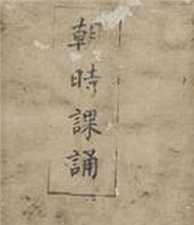 朝時課誦